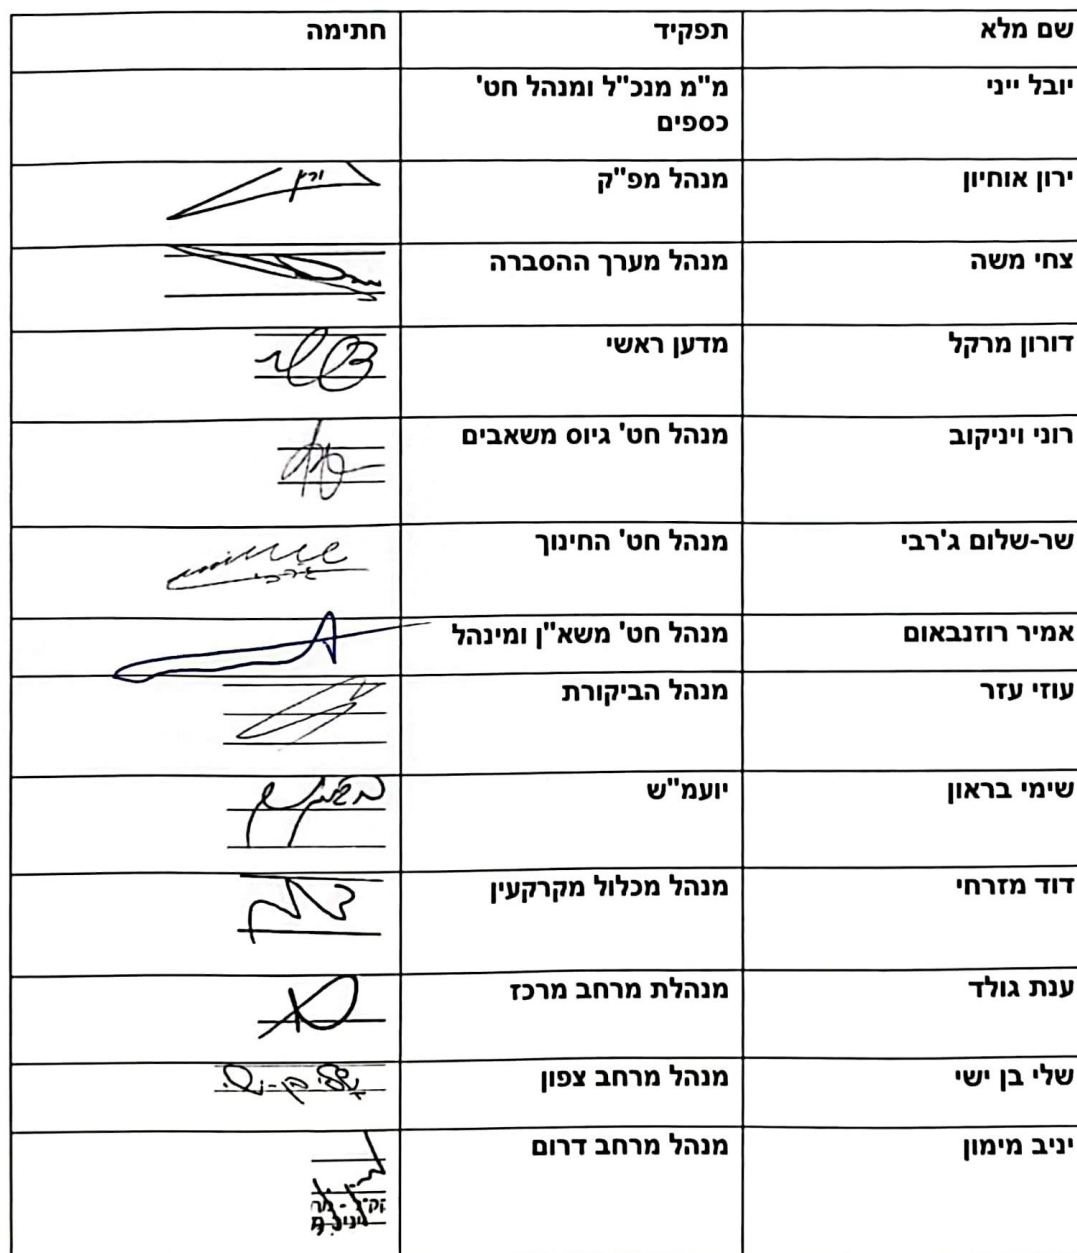 שם מלא תפקיד חתימה
יובל ייני מ"מ מנכ"ל ומנהל חט'
כספים
ירון אוחיון מנהל מפ"ק
צחי משה מנהל מערך ההסברה
דורון מרקל מדען ראשי
רוני ויניקוב מנהל חט' גיוס משאבים
שר-שלום ג'רבי מנהל חט' החינוך
אמיר רוזנבאום מנהל חט' משא"ן ומינהל
עוזי עזר מנהל הביקורת
שימי בראון יועמ"ש
דוד מזרחי מנהל מכלול מקרקעין
ענת גולד מנהלת מרחב מרכז
שלי בן ישי מנהל מרחב צפון שלי בן-ישי
יניב מימון מנהל מרחב דרום